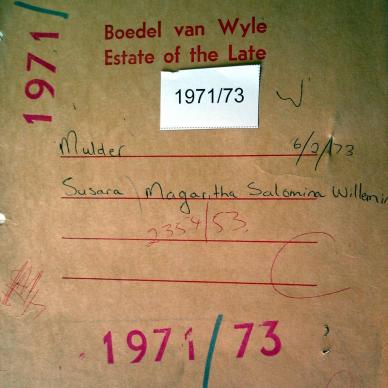 1971/
Boedel van Wyle
Estate of the Late
1971/73
W
Mulder 6/2/73
Susara Magaritha Salomina Willemin
2354/53.
1971/73